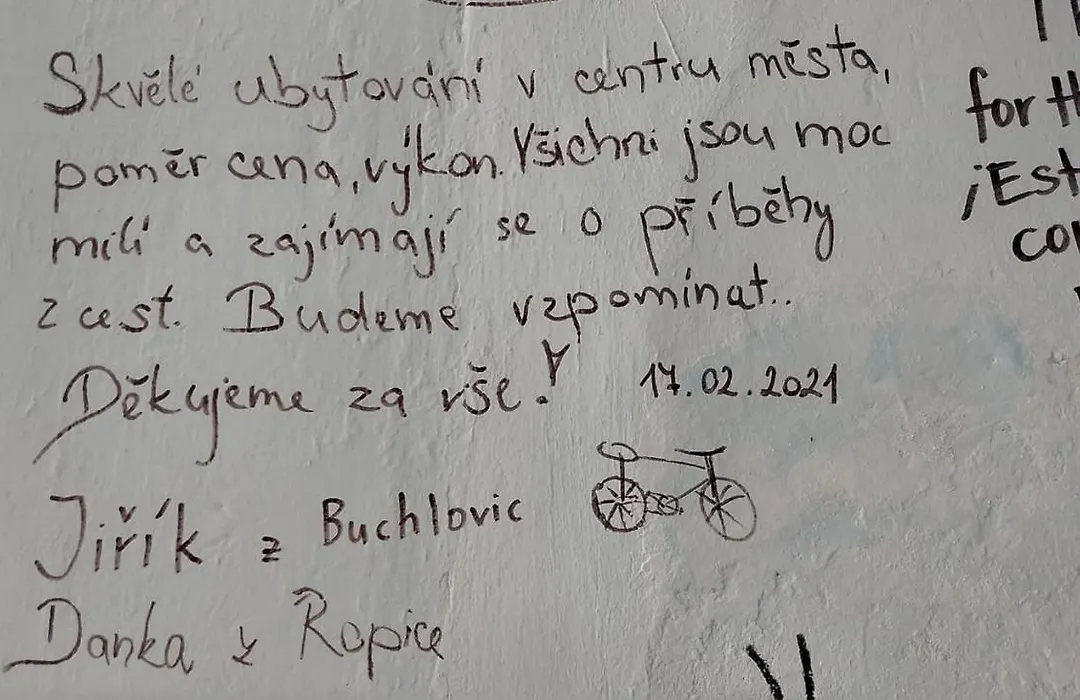 Skvělé ubytování v centru města,
poměr cena, výkon. Všichni jsou moc
milí a zajímají se o příběhy
z cest. Budeme vzpomínat..
Děkujeme za vše!
17.02.2021
Jiřík z Buchlovic
Danka z Ropice
for
¡Est